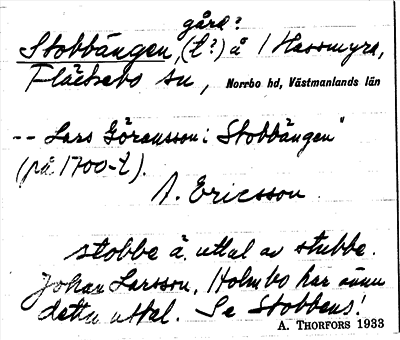 gård?
Stobbängen, (t?) å / Hassmyra,
Fläckebo sn, Norrbo hd, Västmanlands län
-- Lars Göransson i Stobbängen"
(på 1700-t).
A. Ericsson.
stobbe ä. uttal av stubbe.
Johan Larsson, Holmbo har ännu
detta uttal. Se Stobbens!
A. THORFORS 1933